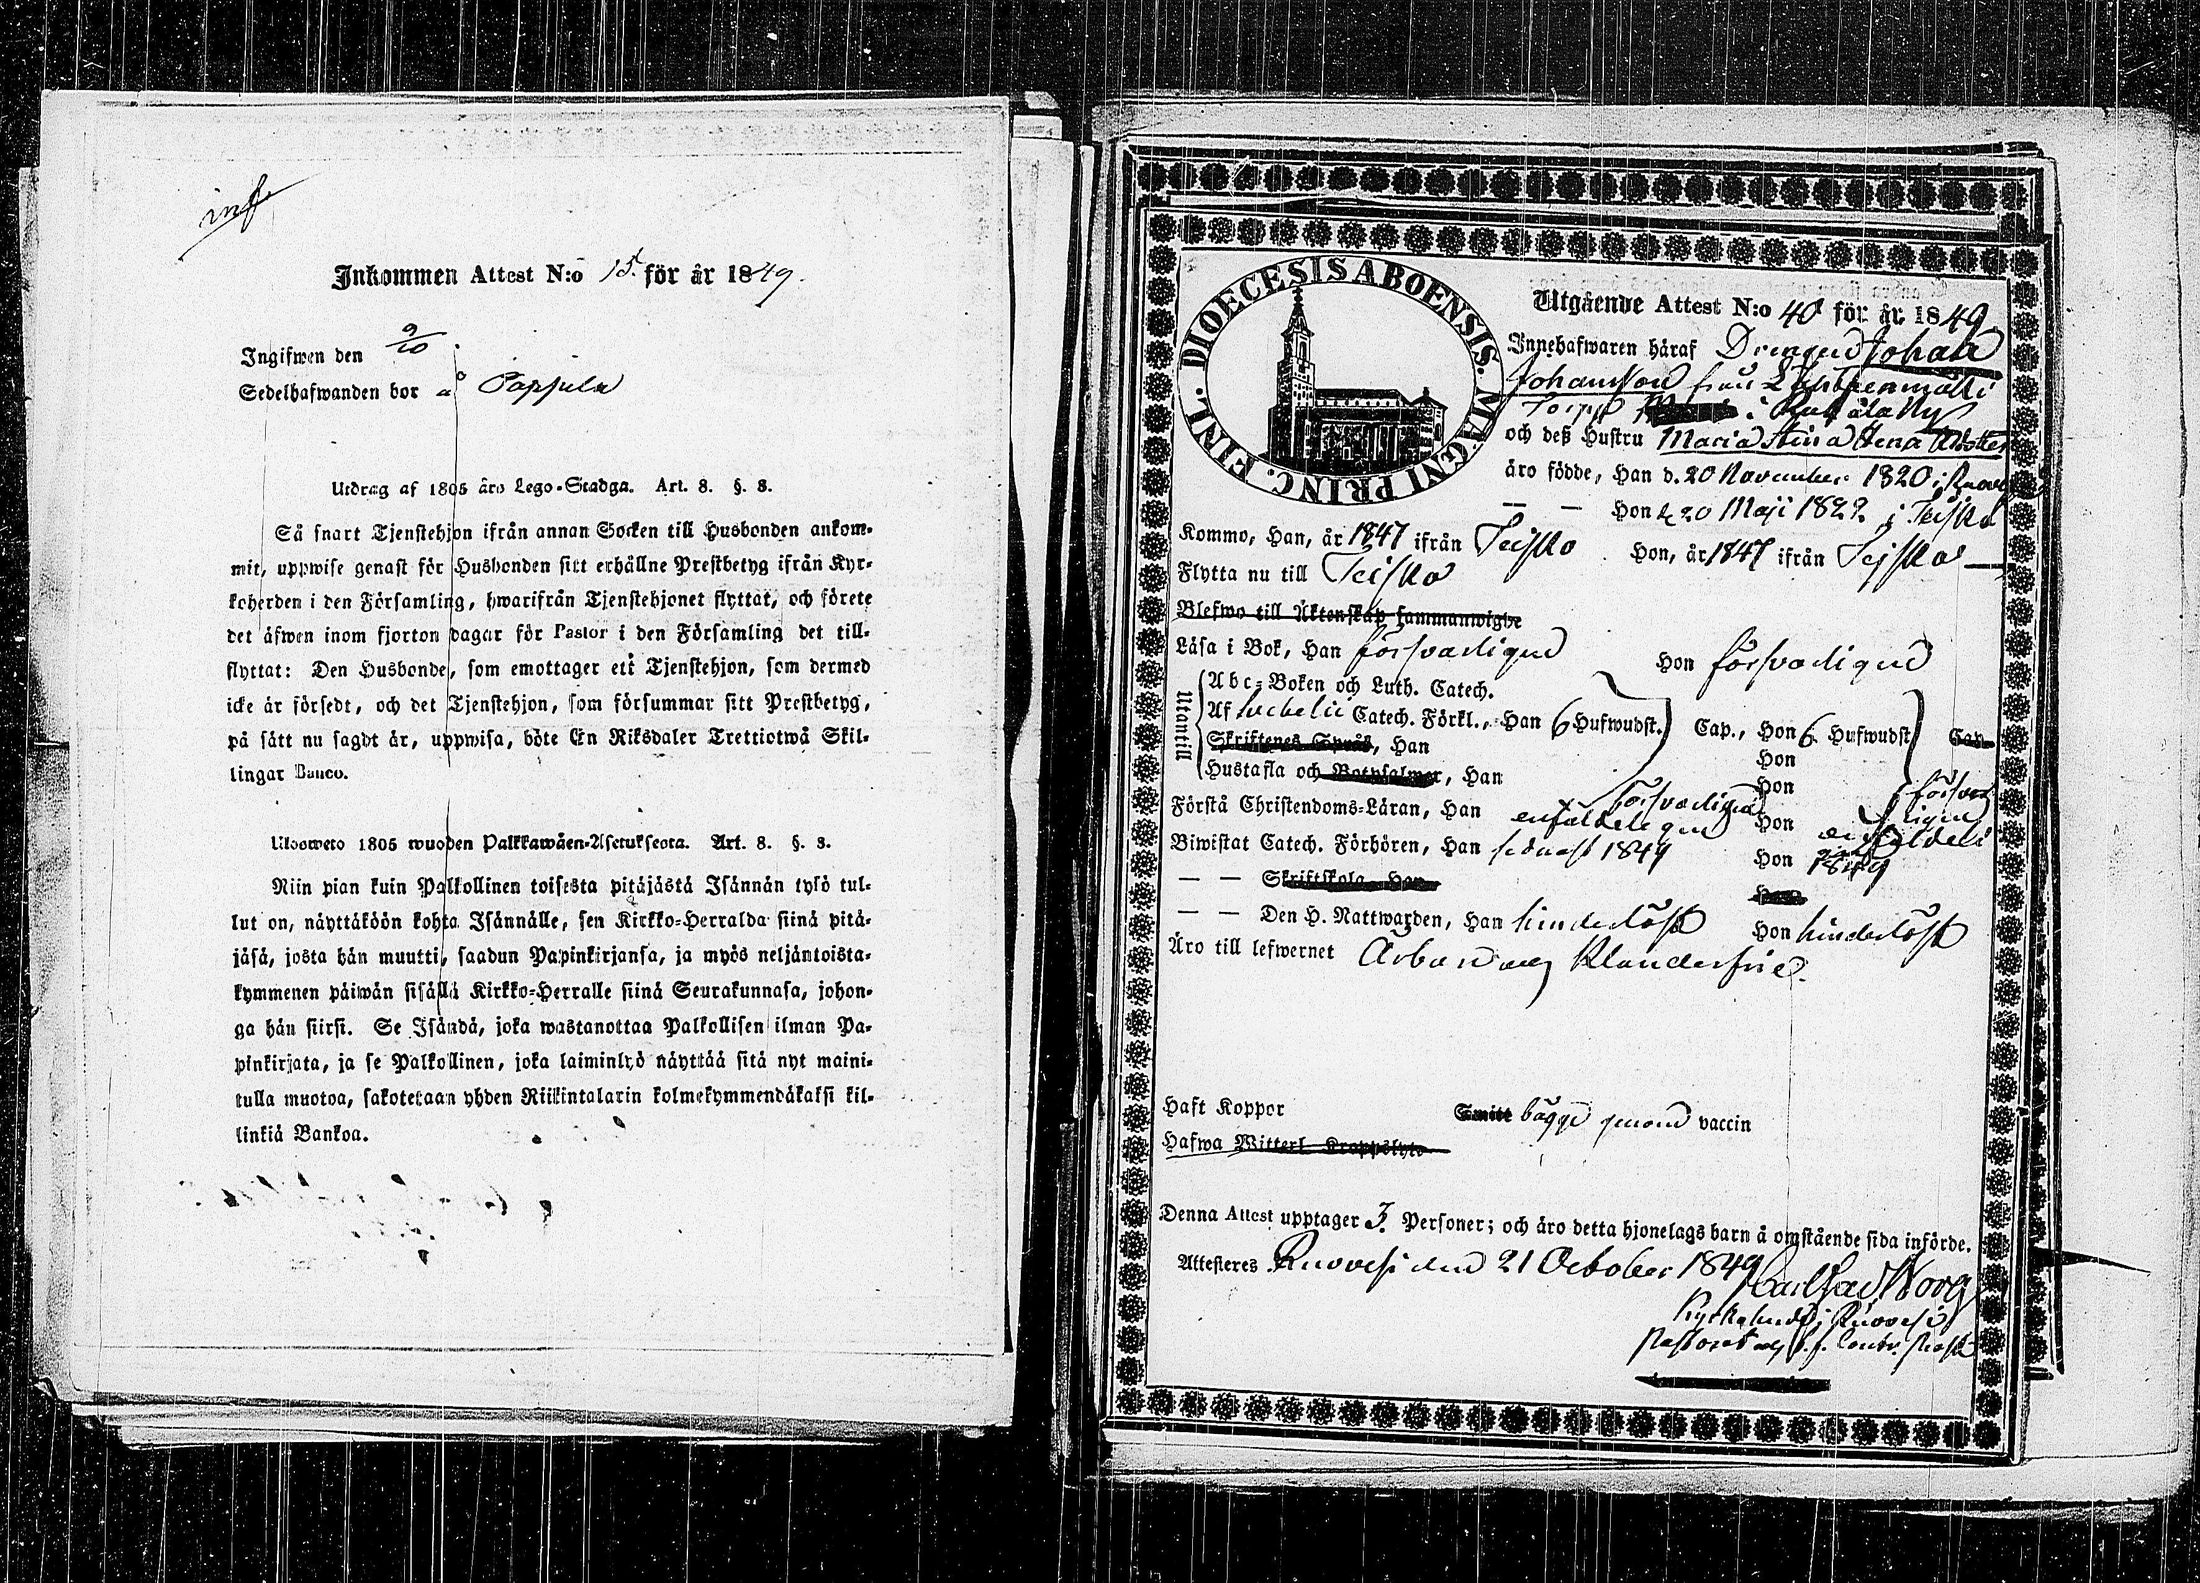 inf.
Inkommen Attest N:o 15. för år 1849.
Ingifwen den 9/10.
Sedelhafwanden bor å Pappila
Utdrag af 1805 års Lego-Stadga. Art. 8. §. 8.
Så snart Tjenstehjon ifrån annan Socken till Husbonden ankom-
mit, uppwise genast för Husbonden sitt erhållne Prestbetyg ifrån Kyr-
koherden i den Församling, hwarifrån Tjenstehjonet flyttat, och förete
det äfwen inom fjorton dagar för Pastor i den Församling det till-
flyttat: Den Husbonde, som emottager ett Tjenstehjon, som dermed
icke är försedt, och det Tjenstehjon, som försummar sitt Prestbetyg,
på sätt nu sagdt är, uppwisa, böte En Riksdaler Trettiotwå Skil-
lingar Banco.
Uloosweto 1805 wuoden Palkkawäen-Asetuksesta. Art. 8. §. 8.
Niin pian kuin Palkollinen toisesta pitäjästä Isännän työ tul-
lut on, näyttäköön kohta Isännälle, sen Kirkko-Herralda siinä pitä-
jäsä, josta hän muutti, saadun Papinkirjansa, ja myös neljäntoista-
kymmenen päiwän sisällä Kirkko-Herralle siinä Seurakunnasa, johon-
ga hän siirsi. Se Isändä, joka wastanottaa Palkollisen ilman Pa-
pinkirjata, ja se Palkollinen, joka laiminlyö näyttää sitä nyt maini-
tulla muotoa, sakotetaan yhden Riikintalarin kolmekymmendäkaksi kil-
linkiä Bankoa.
DIOECESIS ABOENSIS. MAGNI PRINC. FINL.
Utgående Attest N:o 40 för år 1849
Innehafwaren häraf Drengen Johan
Johansson från
Torp i
och deß Hustru Maria Stina
äro födde, Han d. 20 November 1820 i Ruovesi
— — Hon d. 20 Maji 1822 i Teisko
Kommo, Han, år 1847 ifrån Teisko Hon, år 1847 ifrån Teisko —
Flytta nu till Teisko
Blefwo till Äktenskap sammanwigde
Läsa i Bok, Han försvarligen Hon försvarligen
Utantill
Abc-Boken och Luth. Catech.
Af Catech. Förkl., Han 6 Hufwudst. Cap., Hon 6 Hufwudst Cap.
Skriftenes Språk, Han Hon
Hustafla och Botpsalmer, Han Hon
försvarligen försvarligen
Förstå Christendoms-Läran, Han enfaldeligen Hon enfaldeligen
Biwistat Catech. Förhören, Han sednast 1849 Hon 1849
— — Skriftskola, Han Hon
— — Den H. Nattwarden, Han hinderlöst Hon hinderlöst
Äro till lefwernet Ärbara och Klanderfrie.
Haft Koppor Smitt bägge genom vaccin
Hafwa Witterl. Kroppslyte
Denna Attest upptager 3. Personer; och äro detta hjonelags barn å omstående sida införde.
Attesteres Ruovesi den 21 October 1849